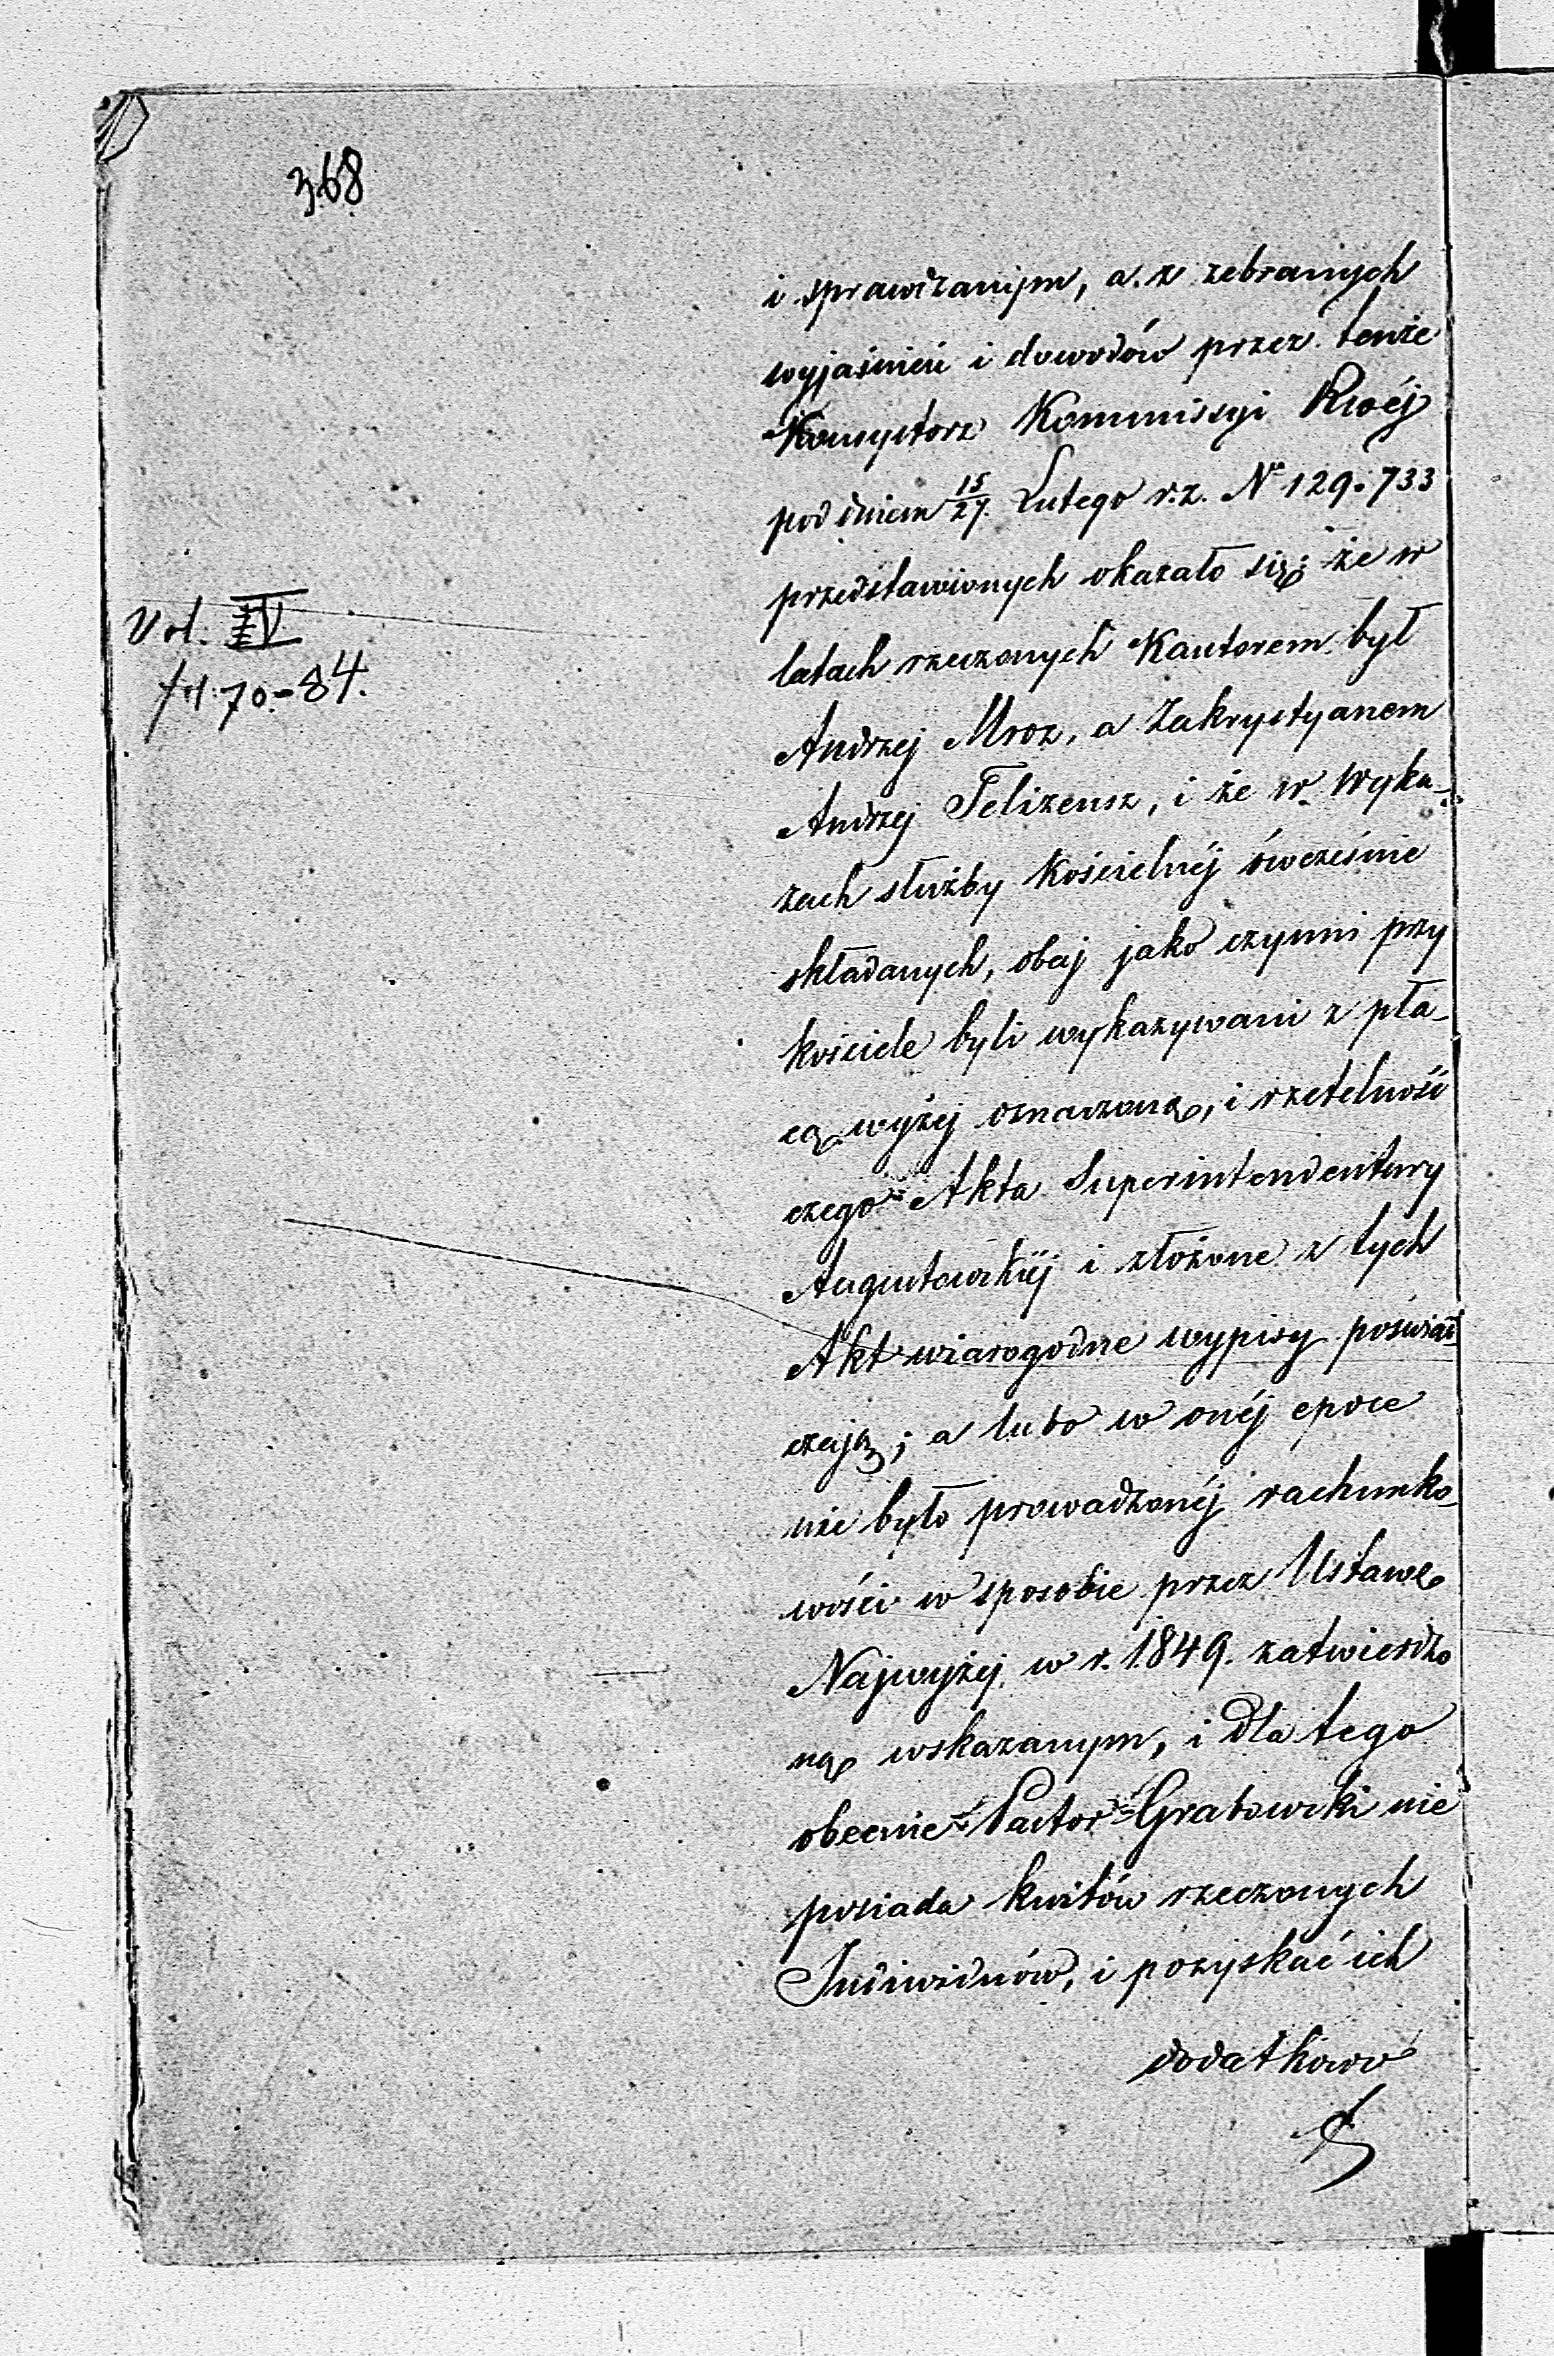 368
i sprawdzanym, a z zebranych
wyjaśnień i dowodów przez tenże
Konsystorz Kommissyi Rwéj
pod dniem 15/27 Lutego r.z. No 129.733
przedstawionych okazało się; że w
latach rzeczonych Kantorem był
Andrzej Mroz, a Zakrystyanem
Andrzej Felizeusz, i że w wyka-
zach służby Kościelnéj ówcześnie
składanych, obaj jako czynni przy
kościele byli wykazywani z pła-
cą wyżej oznaczoną, i rzetelność
czego Akta Superintendentury
Augustowskiéj i złożone z tych
Akt wiarogodne wypisy poświad
czają; a lubo w onéj epoce
nie było prowadzonéj rachunko-
wości w sposobie przez Ustawę
Najwyżej w r. 1849. zatwierdzo
ną wskazanym, i dla tego
obecnie Pastor Grabowski nie
posiada kwitów rzeczonych
Indiwiduów, i pozyskać ich
dodatkowo
Vol. IV
70-84.